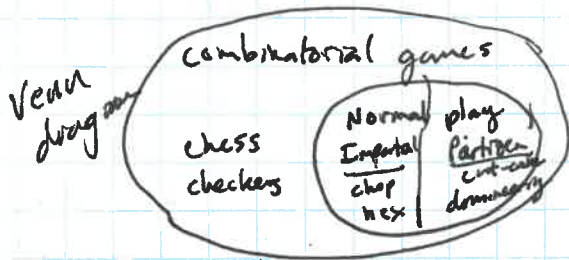 Venn
diagram
combinatorial games
chess
checkers
Normal play
Impartial
chop
hex
Partizan
cut-cake
domineering